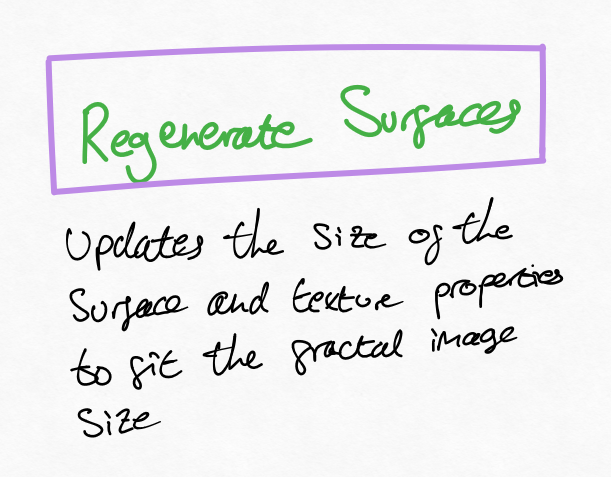 Regenerate Surfaces
Updates the size of the
Surface and texture properties
to fit the fractal image
Size